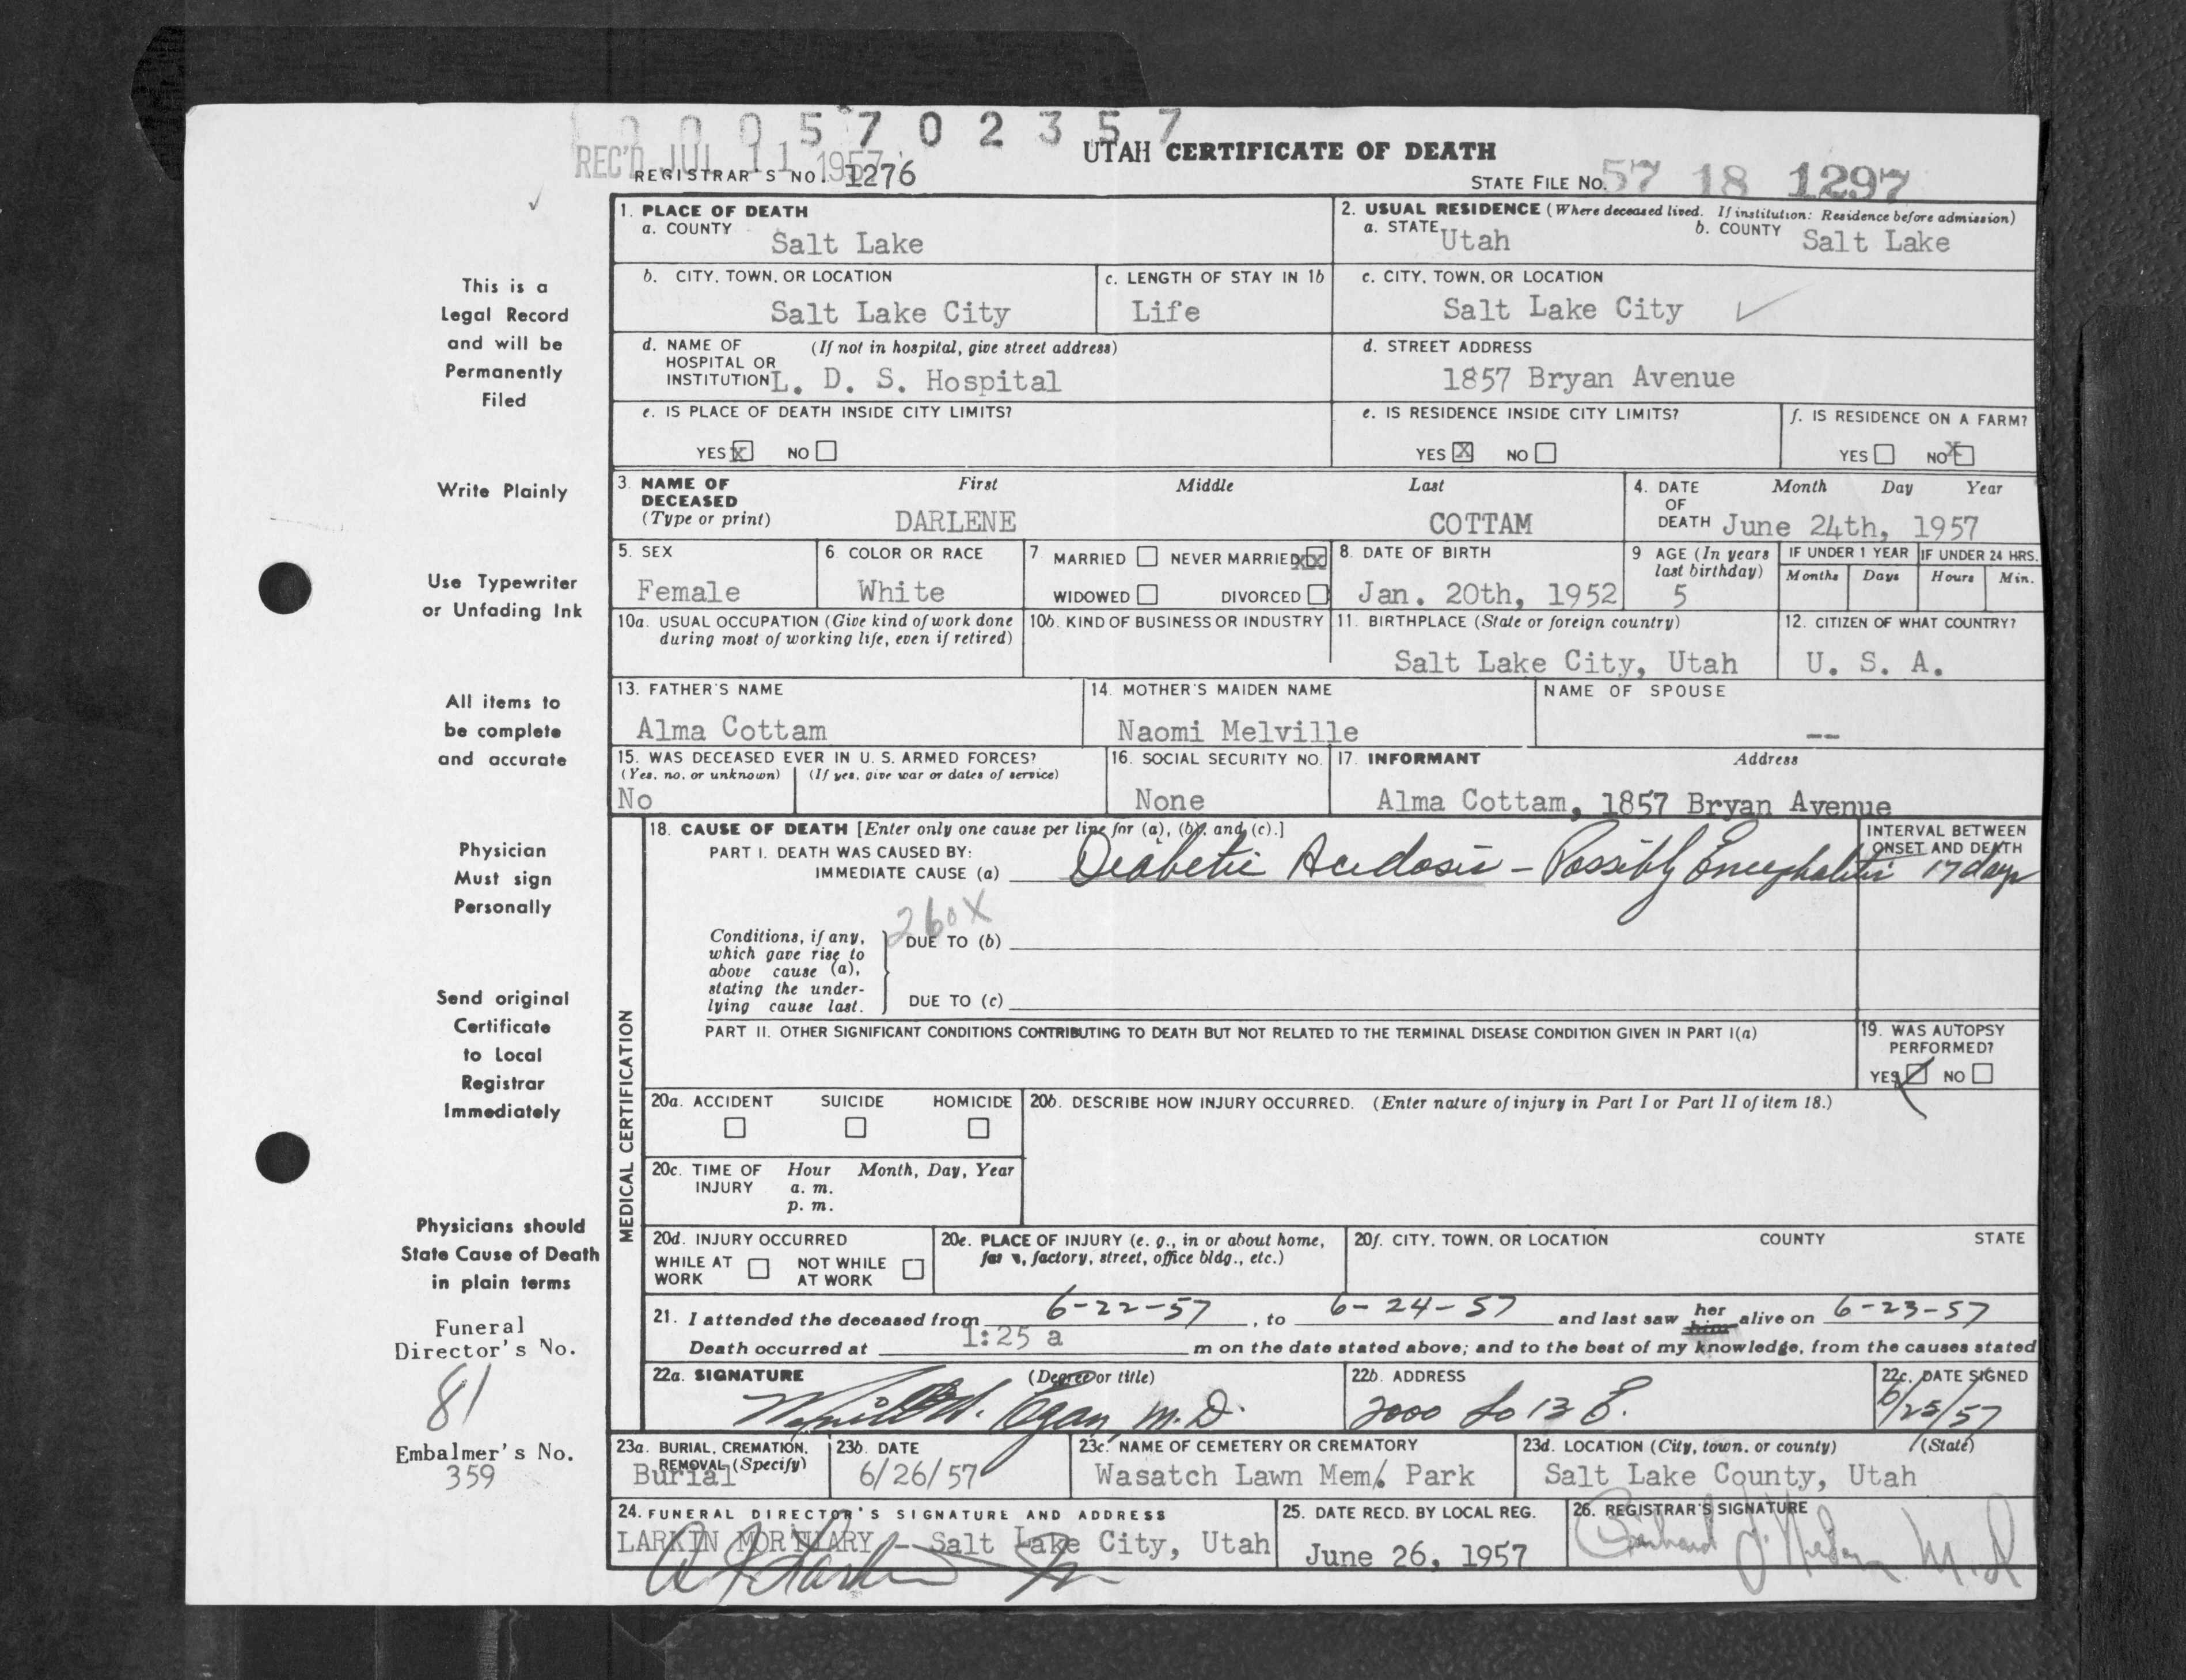 0005702357
REC'D JUL 11 1957
UTAH CERTIFICATE OF DEATH
REGISTRAR'S NO. 1276
STATE FILE NO. 57 18 1297
This is a
Legal Record
and will be
Permanently
Filed
Write Plainly
Use Typewriter
or Unfading Ink
All items to
be complete
and accurate
Physician
Must sign
Personally
Send original
Certificate
to Local
Registrar
Immediately
Physicians should
State Cause of Death
in plain terms
Funeral
Director's No.
81
Embalmer's No.
359
1. PLACE OF DEATH
a. COUNTY
Salt Lake
2. USUAL RESIDENCE (Where deceased lived. If institution: Residence before admission)
a. STATE Utah b. COUNTY Salt Lake
b. CITY, TOWN, OR LOCATION
Salt Lake City
c. LENGTH OF STAY IN 1b
Life
c. CITY, TOWN, OR LOCATION
Salt Lake City
d. NAME OF (If not in hospital, give street address)
HOSPITAL OR
INSTITUTION L. D. S. Hospital
d. STREET ADDRESS
1857 Bryan Avenue
e. IS PLACE OF DEATH INSIDE CITY LIMITS?
YES X NO
e. IS RESIDENCE INSIDE CITY LIMITS?
YES X NO
f. IS RESIDENCE ON A FARM?
YES NO X
3. NAME OF First Middle Last
DECEASED
(Type or print) DARLENE COTTAM
4. DATE Month Day Year
OF
DEATH June 24th, 1957
5. SEX
Female
6. COLOR OR RACE
White
7 MARRIED NEVER MARRIED XX
WIDOWED DIVORCED
8. DATE OF BIRTH
Jan. 20th, 1952
9 AGE (In years
last birthday)
5
IF UNDER 1 YEAR
Months Days
IF UNDER 24 HRS.
Hours Min.
10a. USUAL OCCUPATION (Give kind of work done
during most of working life, even if retired)
10b. KIND OF BUSINESS OR INDUSTRY
11. BIRTHPLACE (State or foreign country)
Salt Lake City, Utah
12. CITIZEN OF WHAT COUNTRY?
U. S. A.
13. FATHER'S NAME
Alma Cottam
14. MOTHER'S MAIDEN NAME
Naomi Melville
NAME OF SPOUSE
--
15. WAS DECEASED EVER IN U. S. ARMED FORCES?
(Yes, no, or unknown) (If yes, give war or dates of service)
No
16. SOCIAL SECURITY NO.
None
17. INFORMANT Address
Alma Cottam, 1857 Bryan Avenue
MEDICAL CERTIFICATION
18. CAUSE OF DEATH [Enter only one cause per line for (a), (b), and (c).]
PART I. DEATH WAS CAUSED BY:
IMMEDIATE CAUSE (a) Diabetic Acidosis - Possibly Encephalitis
INTERVAL BETWEEN
ONSET AND DEATH
17 days
260X
Conditions, if any,
which gave rise to
above cause (a),
stating the under-
lying cause last.
DUE TO (b)
DUE TO (c)
PART II. OTHER SIGNIFICANT CONDITIONS CONTRIBUTING TO DEATH BUT NOT RELATED TO THE TERMINAL DISEASE CONDITION GIVEN IN PART I(a)
19. WAS AUTOPSY
PERFORMED?
YES NO
20a. ACCIDENT SUICIDE HOMICIDE
20b. DESCRIBE HOW INJURY OCCURRED. (Enter nature of injury in Part I or Part II of item 18.)
20c. TIME OF Hour Month, Day, Year
INJURY a. m.
p. m.
20d. INJURY OCCURRED
WHILE AT NOT WHILE
WORK AT WORK
20e. PLACE OF INJURY (e. g., in or about home,
farm, factory, street, office bldg., etc.)
20f. CITY, TOWN, OR LOCATION COUNTY STATE
21. I attended the deceased from 6-22-57, to 6-24-57 and last saw her him alive on 6-23-57
Death occurred at 1:25 a m on the date stated above; and to the best of my knowledge, from the causes stated
22a. SIGNATURE (Degree or title)
Egan, M.D.
22b. ADDRESS
2000 So 13 E.
22c. DATE SIGNED
6/25/57
23a. BURIAL, CREMATION,
REMOVAL (Specify)
Burial
23b. DATE
6/26/57
23c. NAME OF CEMETERY OR CREMATORY
Wasatch Lawn Mem. Park
23d. LOCATION (City, town, or county) (State)
Salt Lake County, Utah
24. FUNERAL DIRECTOR'S SIGNATURE AND ADDRESS
LARKIN MORTUARY - Salt Lake City, Utah
25. DATE RECD. BY LOCAL REG.
June 26, 1957
26. REGISTRAR'S SIGNATURE
M.D.